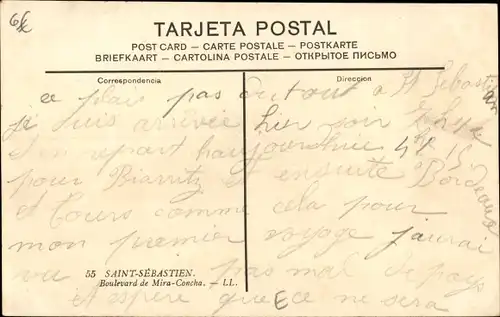 6
TARJETA POSTAL
POST CARD — CARTE POSTALE — POSTKARTE
BRIEFKAART — CARTOLINA POSTALE — ОТКРЫТОЕ ПИСЬМО
Correspondencia
Direccion
plais pas du tout a St Sebastian
je suis arrivée hier soir
repart 4h 15
pour Biarritz et ensuite Bordeaux
et Tours comme cela pour
mon premier voyage j'aurai
vu pas mal de pays
et espère que ce ne sera
55 SAINT-SÉBASTIEN.
Boulevard de Mira-Concha. — LL.